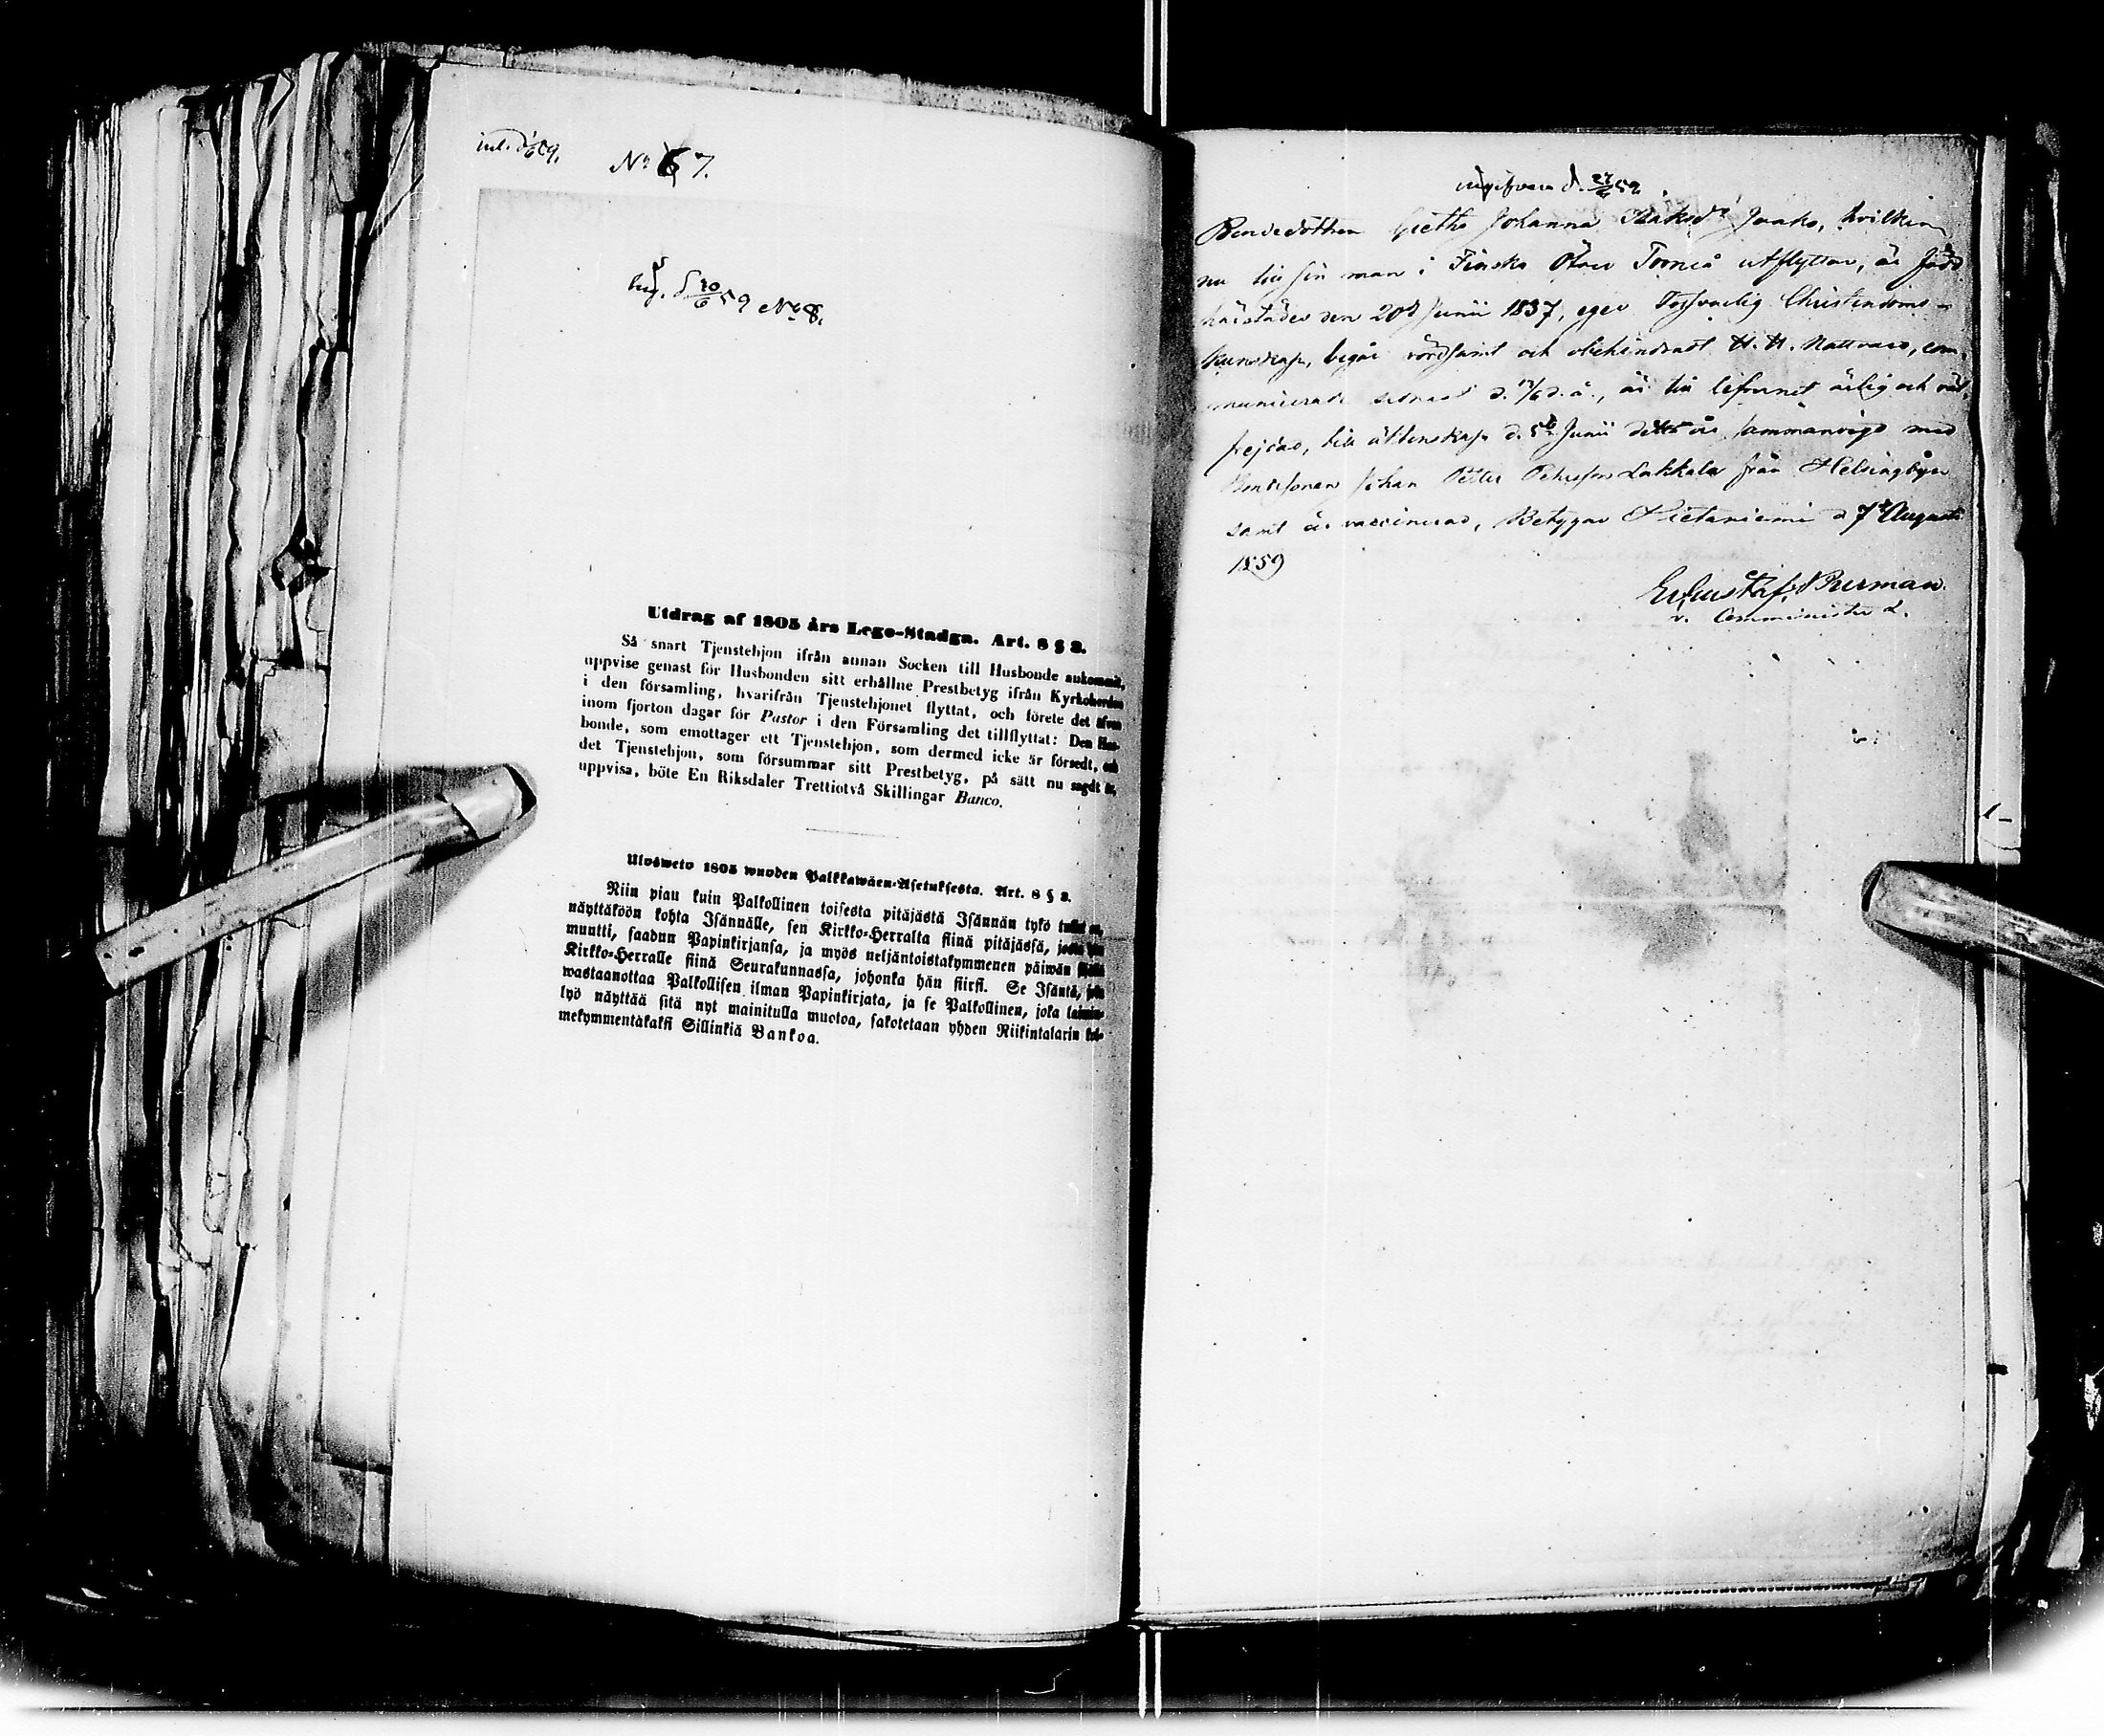 No 67.
59 No 8.
Utdrag af 1805 års Lego-Stadga. Art. 8 § 2.
Så snart Tjenstehjon ifrån annan Socken till Husbonde ankommit,
uppvise genast för Husbonden sitt erhållne Prestbetyg ifrån Kyrkoherden
i den församling, hvarifrån Tjenstehjonet flyttat, och förete det äfven
inom fjorton dagar för Pastor i den Församling det tillflyttat: Den Hus-
bonde, som emottager ett Tjenstehjon, som dermed icke är försedt, och
det Tjenstehjon, som försummar sitt Prestbetyg, på sätt nu sagdt är,
uppvisa, böte En Riksdaler Trettiotvå Skillingar Banco.
Ulosweto 1805 wuoden Palkkawäen-Asetuksesta. Art. 8 § 2.
Niin pian kuin Palkollinen toisesta pitäjästä Isännän tykö tullut on,
näyttäköön kohta Isännälle, sen Kirkko-Herralta siinä pitäjässä, josta hän
muutti, saadun Papinkirjansa, ja myös neljäntoistakymmenen päiwän
Kirkko-Herralle siinä Seurakunnassa, johonka hän siirsi. Se Isäntä, joka
wastaanottaa Palkollisen ilman Papinkirjata, ja se Palkollinen, joka laimin-
lyö näyttää sitä nyt mainitulla muotoa, sakotetaan yhden Riikintalarin kol-
mekymmentäkaksi Sillinkiä Bankoa.
d. 27/6 59
Bondedottren Gretha Johanna Isaksdr Jaako, hvilken
nu till sin man i Finska Öfver Torneå utflyttar, är född
härstädes den 20de Junii 1837, eger försvarlig Christendoms-
kunskap, begår vördsamt och obehindradt H. H. Nattvard, com-
municerade sednast d. å., är till lefvernet ärlig och väl-
frejdad, till äktenskap d. 5te Junii detta år sammanvigd med
Bondsonen Johan Petter Lakkala från Helsingbyn
samt är vaccinerad, Betygar Hietaniemi d 7de Augusti
1859
Gustaf Burman
v. Comminister